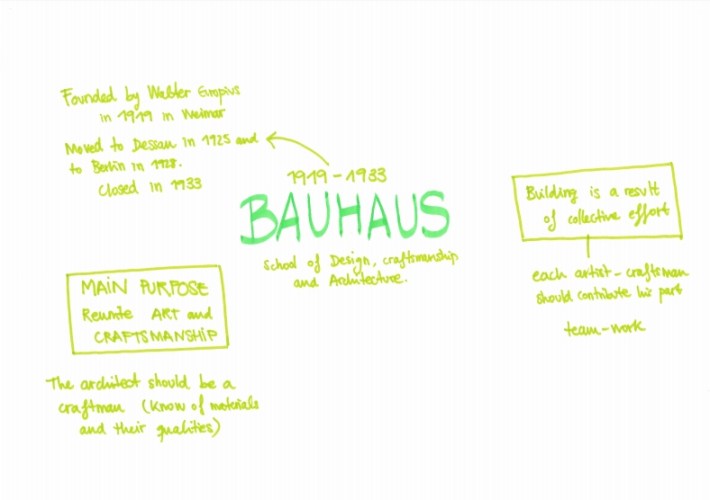 Founded by Walter Gropius
in 1919 in Weimar
Moved to Dessau in 1925 and
to Berlin in 1928.
Closed in 1933
1919-1933
BAUHAUS
School of Design, craftsmanship
and Architecture.
MAIN PURPOSE
Reunite ART and
CRAFTSMANSHIP
The architect should be a
craftman (Know of materials
and their qualities)
Building is a result
of collective effort
each artist-craftsman
should contribute his part
team-work